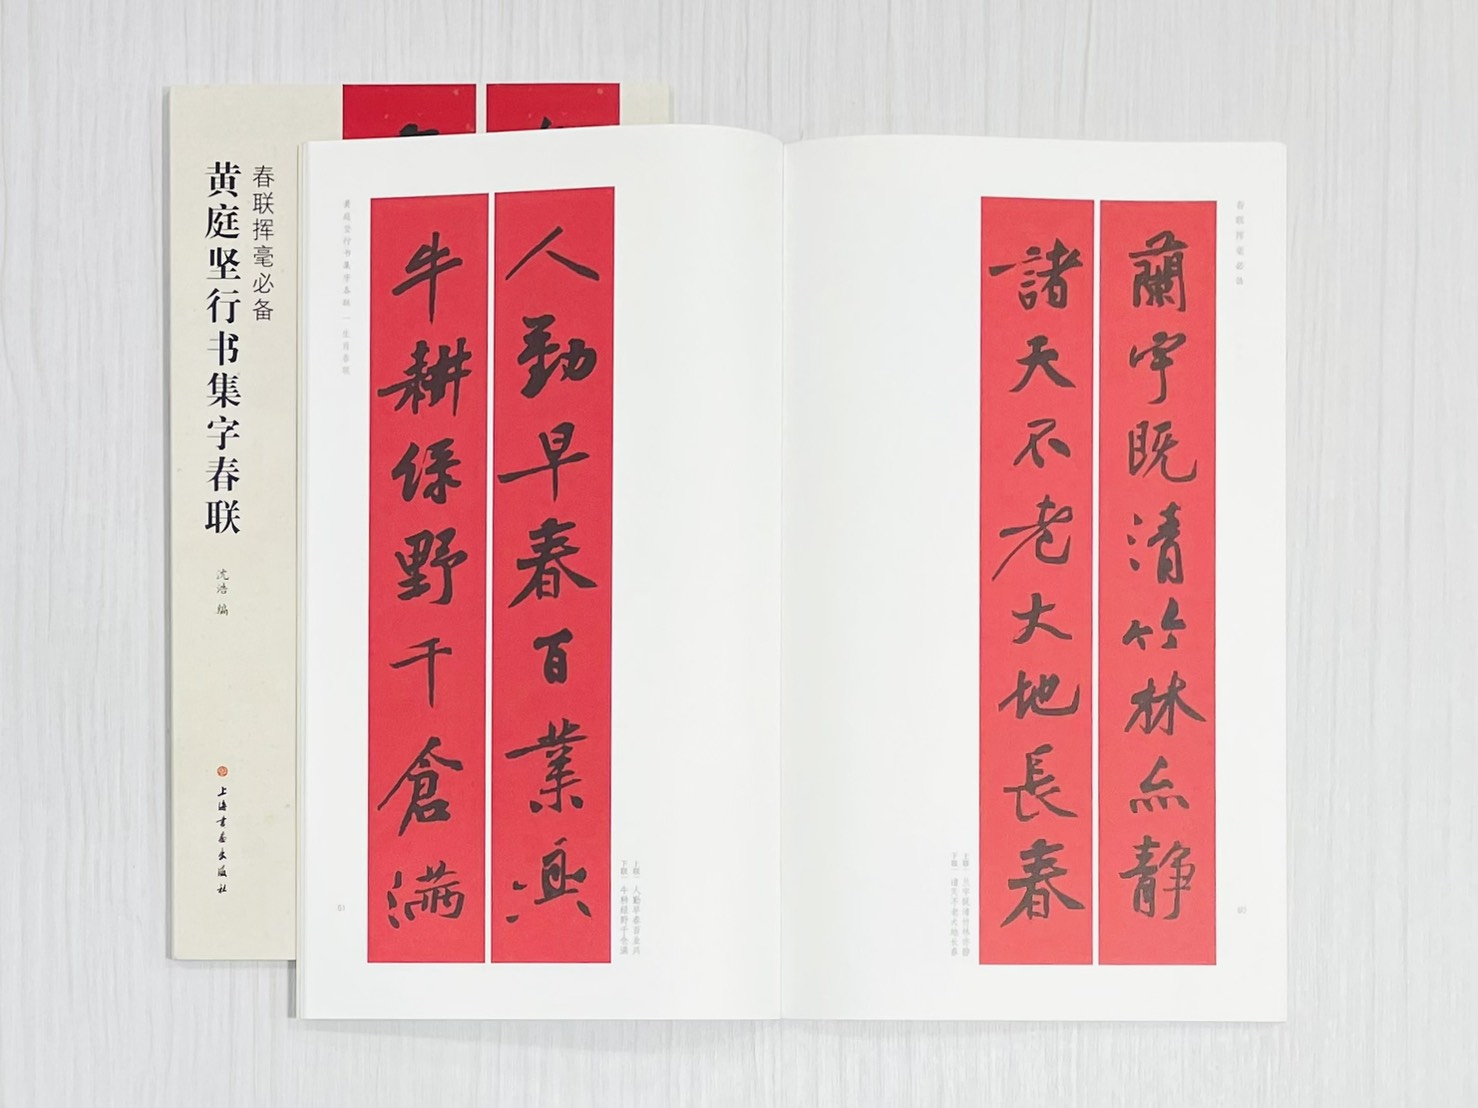 春联挥毫必备
黄庭坚行书集字春联
沈浩 编
上海书画出版社
春联挥毫必备
蘭宇既清竹林亦静
諸天不老大地長春
上联｜兰宇既清竹林亦静
下联｜诸天不老大地长春
人勤早春百業興
牛耕緑野千倉满
上联｜人勤早春百业兴
下联｜牛耕绿野千仓满
黄庭坚行书集字春联｜生肖春联
51